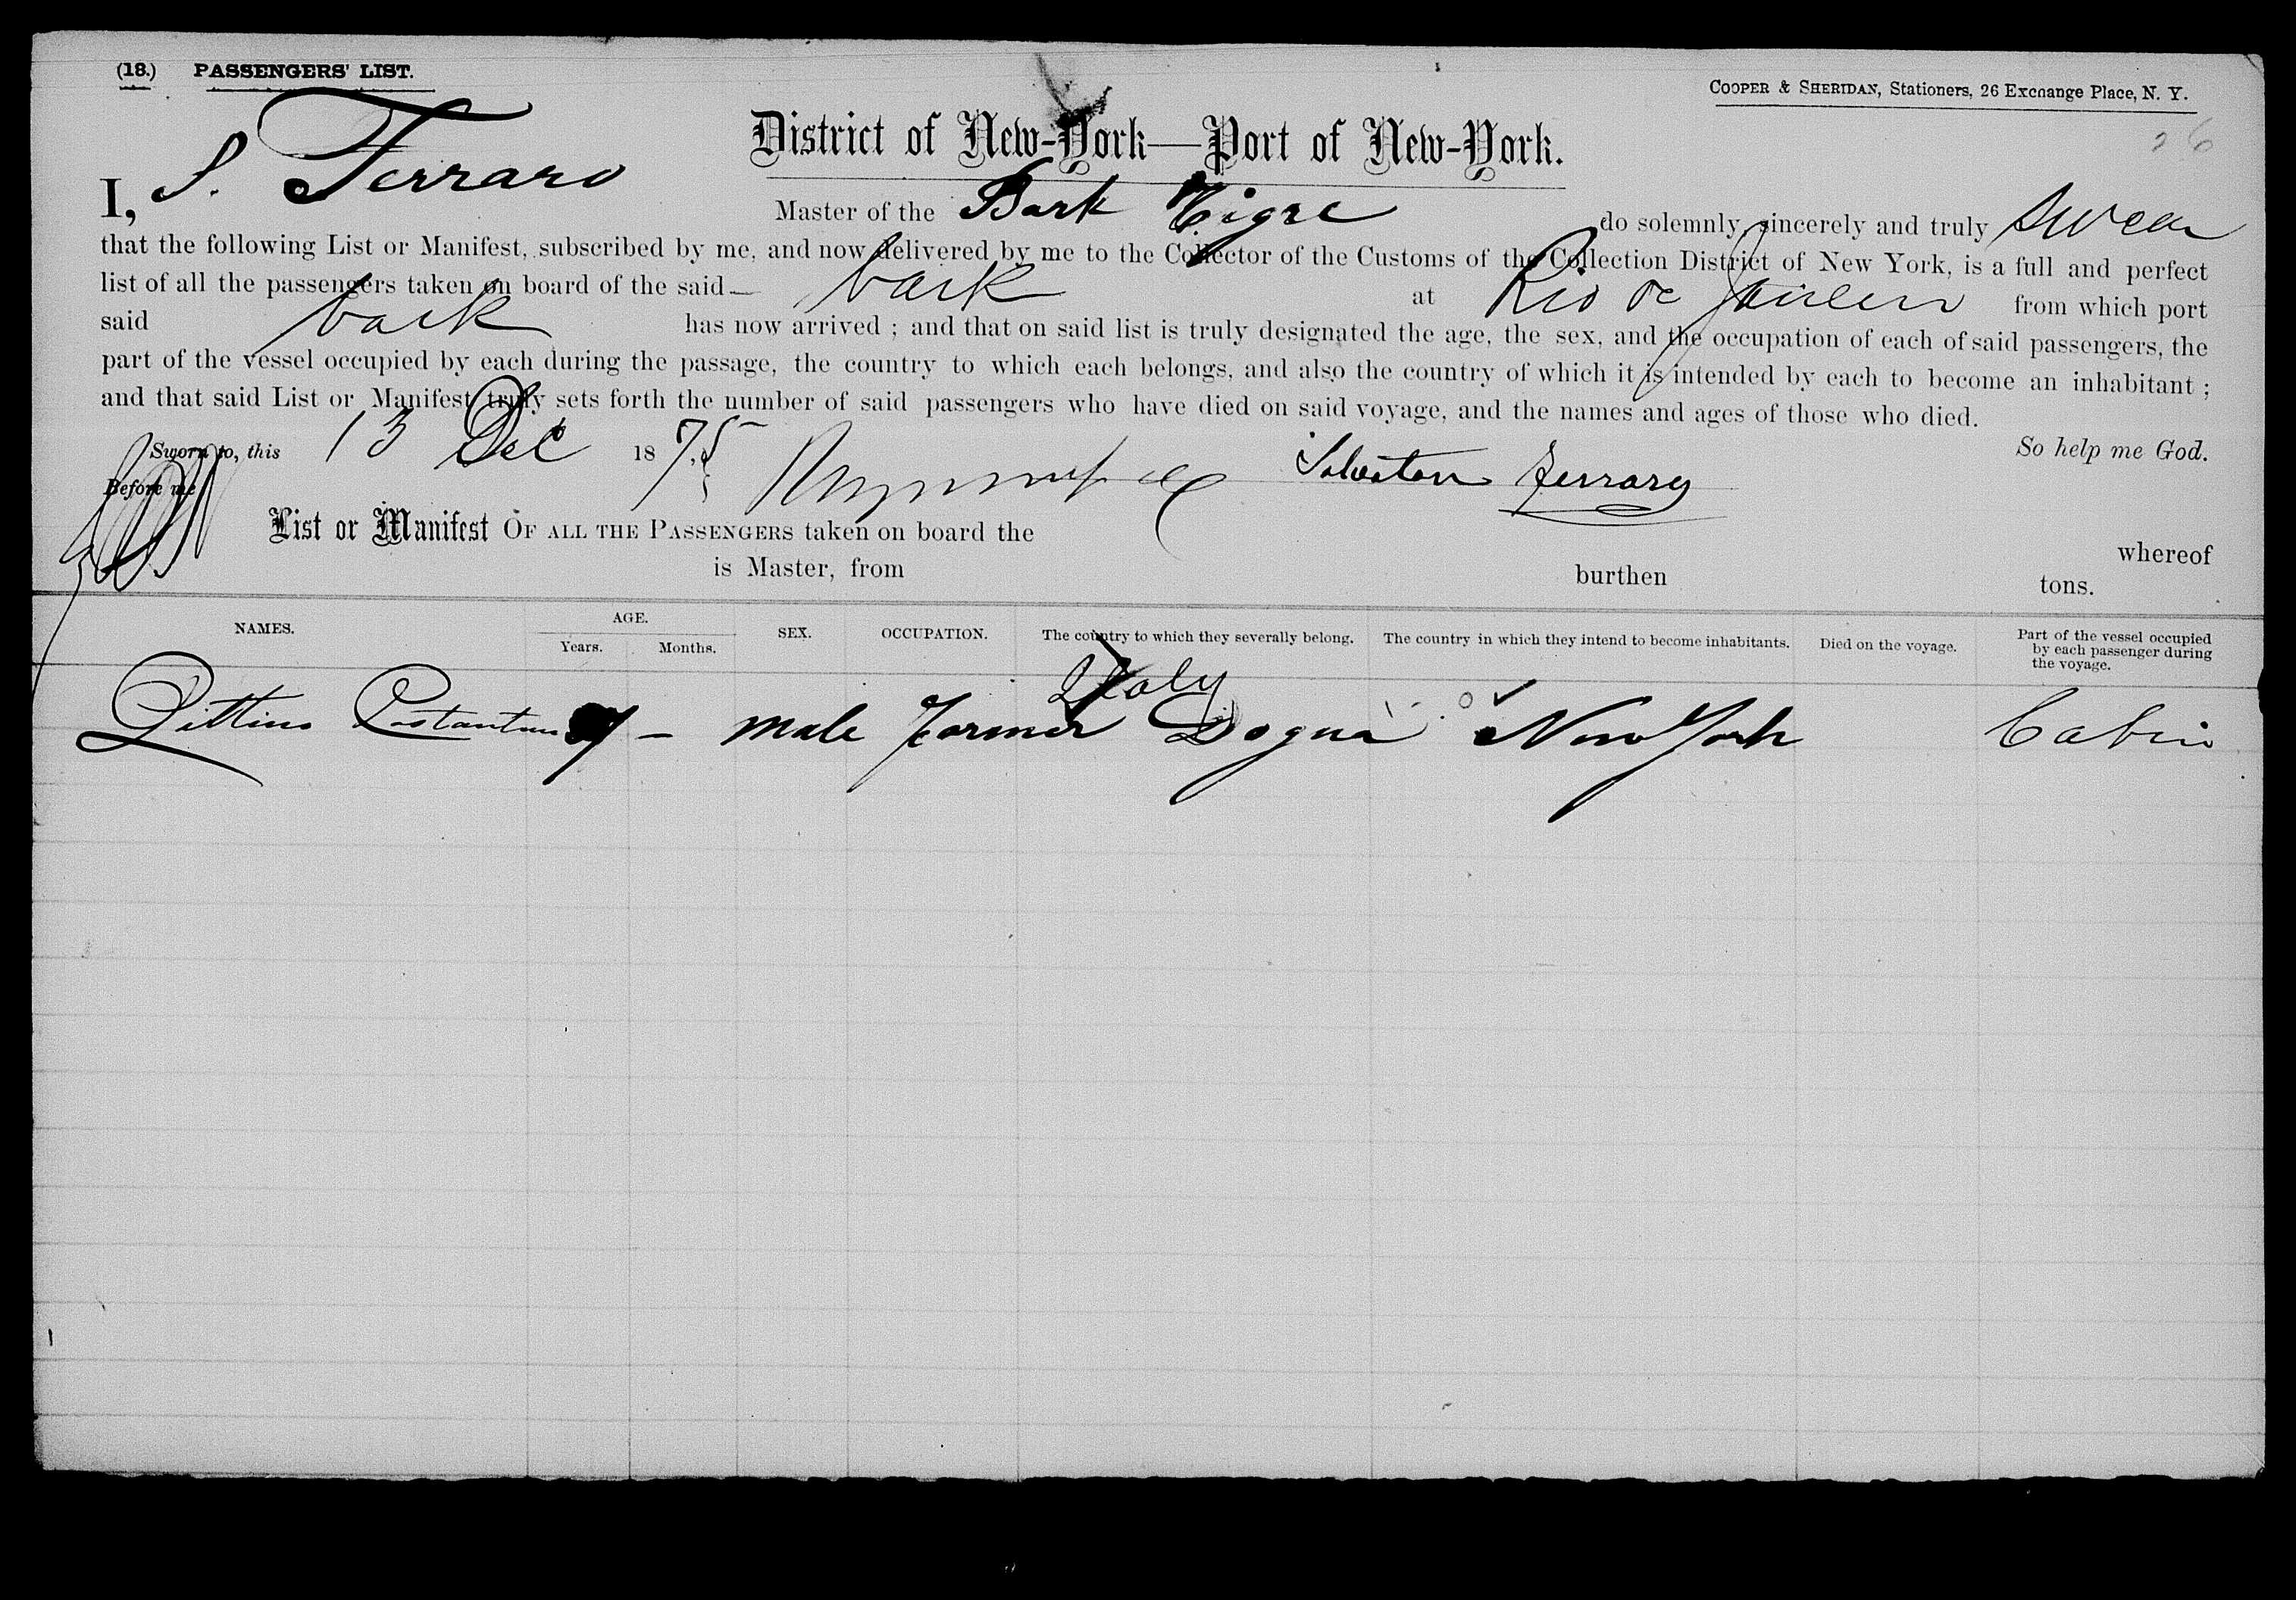 (18.) PASSENGERS' LIST.
COOPER & SHERIDAN, Stationers, 26 Exchange Place, N. Y.
26
District of New-York—Port of New-York.
I, S. Ferraro Master of the Bark Tigre do solemnly, sincerely and truly swear
that the following List or Manifest, subscribed by me, and now delivered by me to the Collector of the Customs of the Collection District of New York, is a full and perfect
list of all the passengers taken on board of the said bark at Rio de Janeiro from which port
said bark has now arrived ; and that on said list is truly designated the age, the sex, and the occupation of each of said passengers, the
part of the vessel occupied by each during the passage, the country to which each belongs, and also the country of which it is intended by each to become an inhabitant ;
and that said List or Manifest truly sets forth the number of said passengers who have died on said voyage, and the names and ages of those who died.
So help me God.
Sworn to, this 13 Dec 1875 Ferraro
Before me
List or Manifest OF ALL THE PASSENGERS taken on board the whereof
is Master, from burthen tons.
NAMES. AGE. Years. Months. SEX. OCCUPATION. The country to which they severally belong. The country in which they intend to become inhabitants. Died on the voyage. Part of the vessel occupied by each passenger during the voyage.
Italy
Pittino Costantino — male farmer Dogna New York Cabin